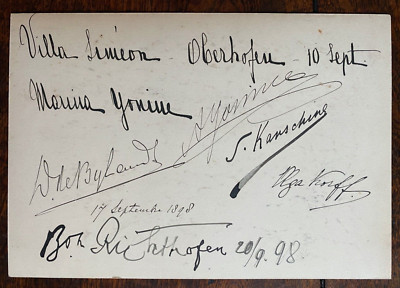 Villa Siméon Oberhofen 10 Sept.
Marina Yonine
A Yonine
D. de Bylandt
S. Kanschine
Olga Korff
17 Septembre 1898
Bon. Richthofen 20/9. 98.